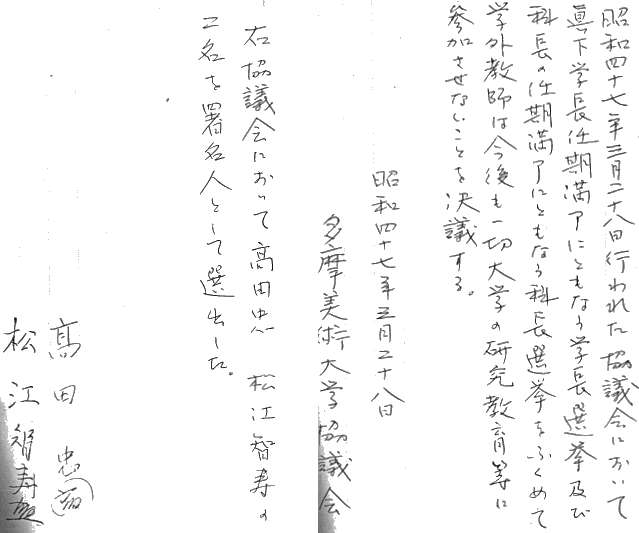 昭和四十七年三月二十八日行われた協議会において
眞下学長任期満了にともなう学長選挙及び
科長の任期満了にともなう科長選挙をふくめて
学外教師は今後も一切大学の研究教育等に
参加させないことを決議する。
昭和四十七年三月二十八日
多摩美術大学協議会
右協議会において高田忠 松江智寿の
二名を署名人として選出した。
高田 忠
松江智寿